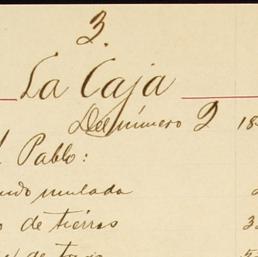 3.
La Caja
Del número 2 18
Pablo:
mulada
de tierras
de